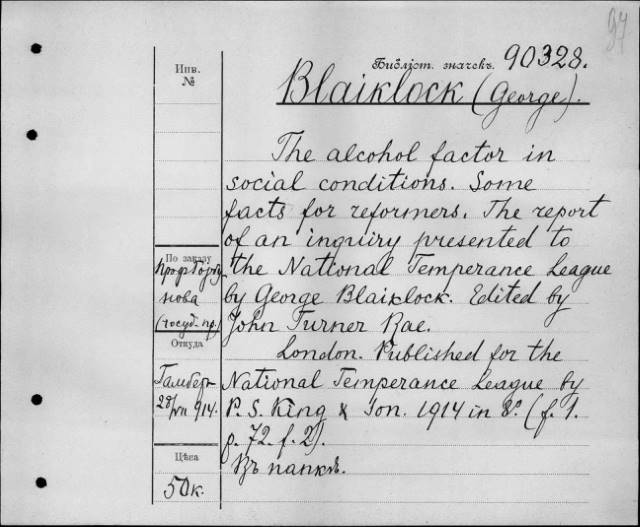 97
Библіот. значекъ. 90328.
Инв.
№
Blaiklock (George).
The alcohol factor in
social conditions. Some
facts for reformers. The report
of an inquiry presented to
the National Temperance League
by George Blaiklock. Edited by
John Turner Rae.
London. Published for the
National Temperance League by
P. S. King & Son. 1914 in 8º. (f. 1.
p. 72. f. 2).
Въ папкѣ.
По заказу
проф.
нова
(госуд. пр.)
Откуда
914.
Цѣна
50 к.